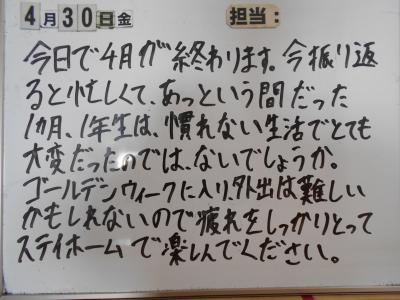 4月30日金 担当:
今日で4月が終わります。今振り返
ると忙しくて、あっという間だった
1ヵ月、1年生は、慣れない生活でとても
大変だったのでは、ないでしょうか。
ゴールデンウィークに入り、外出は難しい
かもしれないので疲れをしっかりとって
ステイホームで楽しんでください。